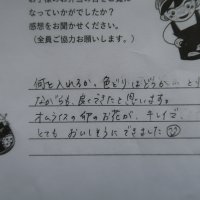 なっていかがでしたか?
感想をお聞かせください。
(全員ご協力お願いします。)
何を入れるか、色どりはどうか… と
ながらも、良くできたと思います。
オムライスの卵のお花が、キレイで、
とてもおいしそうにできました